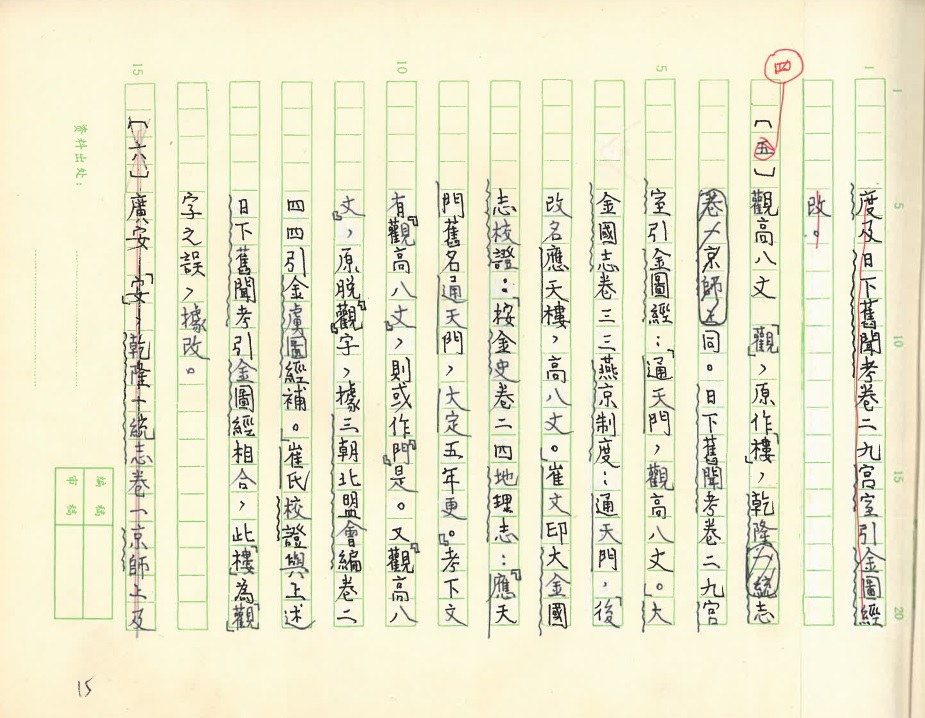 度及日下舊聞考卷二九宮室引金圖經
改。
四
〔五〕觀高八文 「觀」,原作「樓」,乾隆一統志
卷一京師上同。日下舊聞考卷二九宮
室引金圖經:「通天門,觀高八丈。」大
金國志卷三三燕京制度:通天門,後
改名應天樓,高八丈。崔文印大金國
志校證:「按金史卷二四地理志:『應天
門舊名通天門,大定五年更。』考下文
有『觀高八丈』,則或作『門』是。又『觀高八
丈』,原脱『觀』字,據三朝北盟會編卷二
四四引金虜圖經補。」崔氏校證與上述
日下舊聞考引金圖經相合,此「樓」為「觀」
字之誤,據改。
〔六〕廣安 「安」,乾隆一統志卷一京師上及
资料出处:
編輯
审稿
1
5
10
15
1
5
10
15
20
15